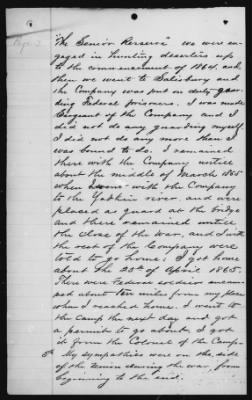 Page 2
"The Senior Reserve" we were en-
gaged in hunting deserters up
to the commencement of 1864, and
then we went to Salisbury and
the Company was put on duty guar-
ding Federal prisoners. I was made
Sergeant of the Company and I
did not do any guarding myself,
I did not do any more than I
was bound to do. I remained
there with the Company until
about the middle of March 1865
when I went with the Company
to the Yathkin river and were
placed as guard at the bridge
and there remained until
the close of the war, and I with
the rest of the Company were
told to go home; I got home
about the 25th of April 1865.
There were Federal soldiers encam-
ped about two miles from my place
when I reached home. I went to
the Camp the next day and got
a permit to go about, I got
it from the Colonel of the Camp.
5th My sympathies were on the side
of the Union during the war, from
beginning to the end.